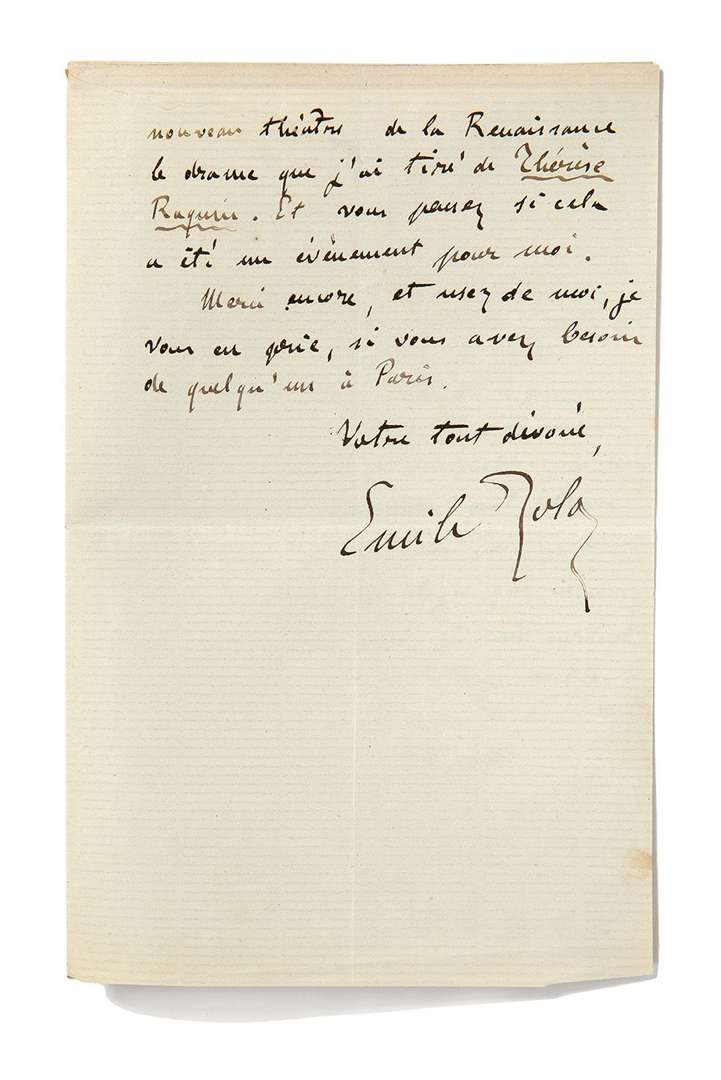 nouveau théâtre de la Renaissance
le drame que j'ai tiré de Thérèse
Raquin. Et vous pensez si cela
a été un événement pour moi.
Merci encore, et usez de moi, je
vous en prie, si vous avez besoin
de quelqu'un à Paris.
Votre tout dévoué,
Emile Zola